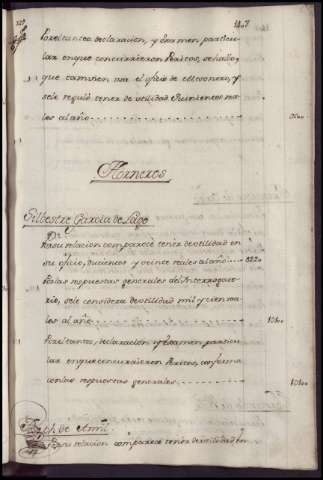 147
Por el tanteo declaracion, y examen particu-
lar en que concurrieron Peritos, se hallo,
que tambien usa el oficio de Mesonero, y
se le regulo tener de utilidad quinientos rea-
les al año
Horneros
Silbestre Garcia de Lago
Por su relacion comparece tener de utilidad en
su oficio, ducientos y veinte reales al año U220
Por las respuestas generales del Interrogato-
rio, se le considera de utilidad mil y cien rea-
les al año 1U100
Por el tanteo, declaracion, y Examen particu-
lar en que concurrieron Peritos, conforma
con las respuestas generales 1U100
Jph. de
Por su relacion comparece tener de utilidad en